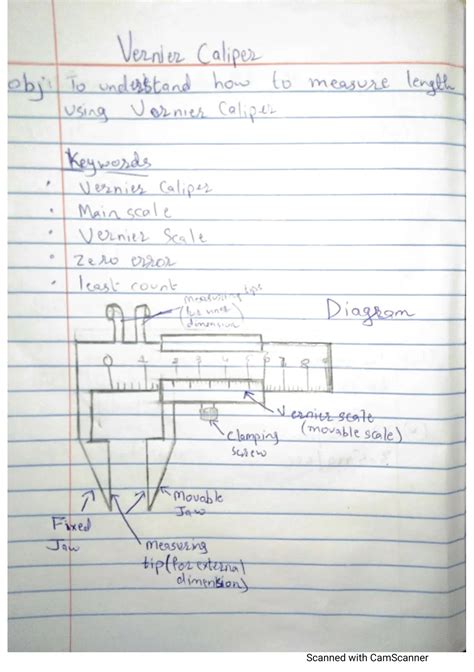 Vernier Caliper
obj: To understand how to measure length
using Vernier Caliper
Keywords
• Vernier Caliper
• Main scale
• Vernier Scale
• Zero error
• least count
measuring tips
(for inner
dimension)
Diagram
0 1 2 3 4 5 6 7 8 9
Vernier scale
(movable scale)
Clamping
screw
Movable
Jaw
Fixed
Jaw
measuring
tip (for external
dimension)
Scanned with CamScanner